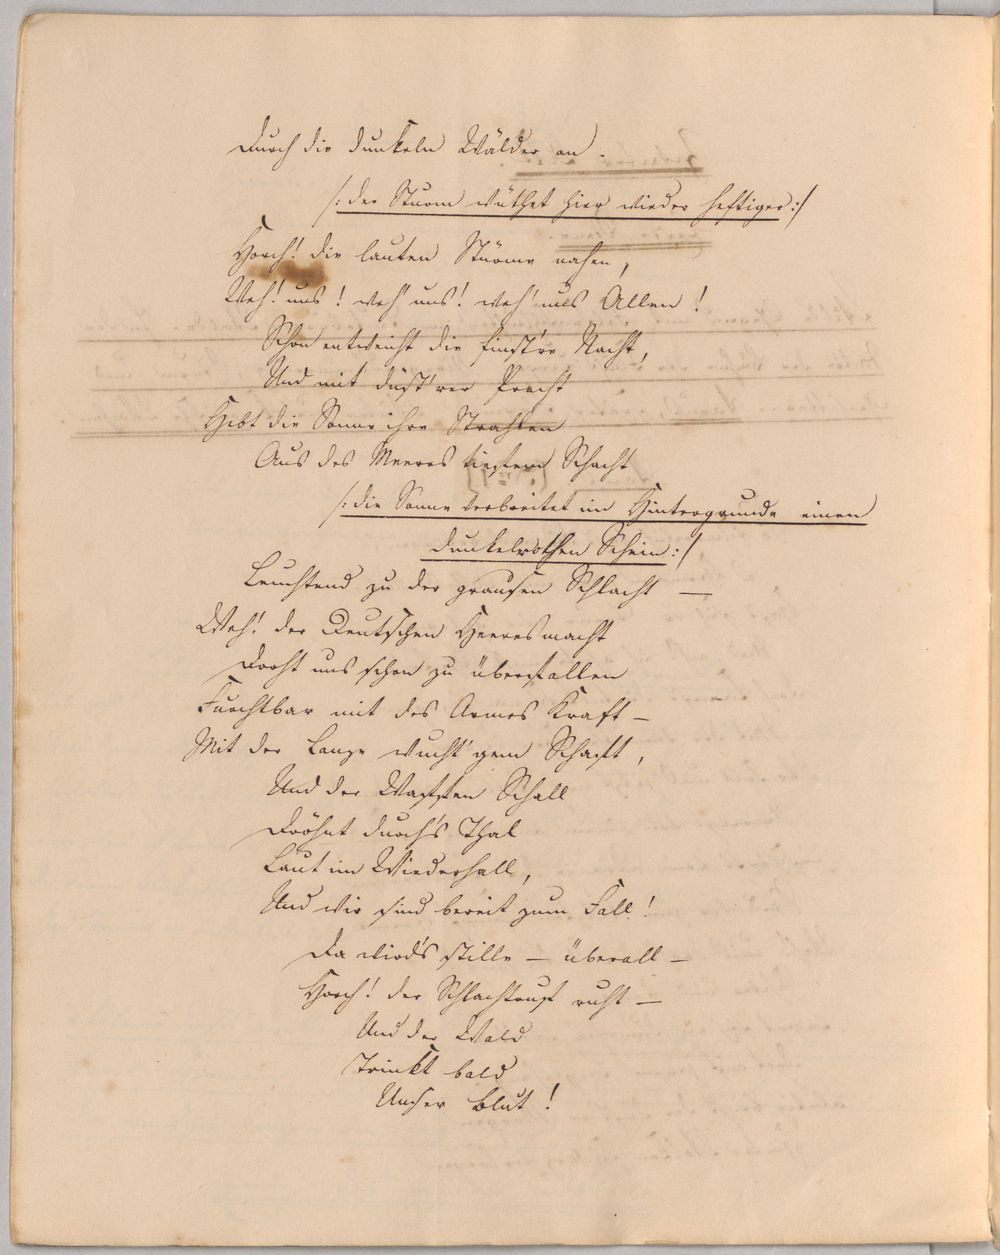 Durch die dunkeln Wälder an.
/: der Sturm wüthet hier wieder heftiger :/
Horch! die lauten Stürme nahen,
Weh! uns! weh' uns! weh' uns Allen!
Schon entweicht die finst're Nacht,
Und mit düst'rer Pracht
Hebt die Sonne ihre Strahlen
Aus des Meeres tiefem Schacht
/: die Sonne verbreitet im Hintergrunde einen
dunkelrothen Schein :/
Leuchtend zu der grausen Schlacht —
Weh! der Deutschen Heeresmacht
Droht uns schon zu überfallen
Furchtbar mit des Armes Kraft —
Mit der Lanze wucht'gem Schaft,
Und der Waffen Schall
Dröhnt durch's Thal
Laut im Wiederhall,
Und wir sind bereit zum Fall!
Da wird's stille — überall —
Horch! der Schlachtruf ruht —
Und der Wald
Trinkt bald
Unser Blut!